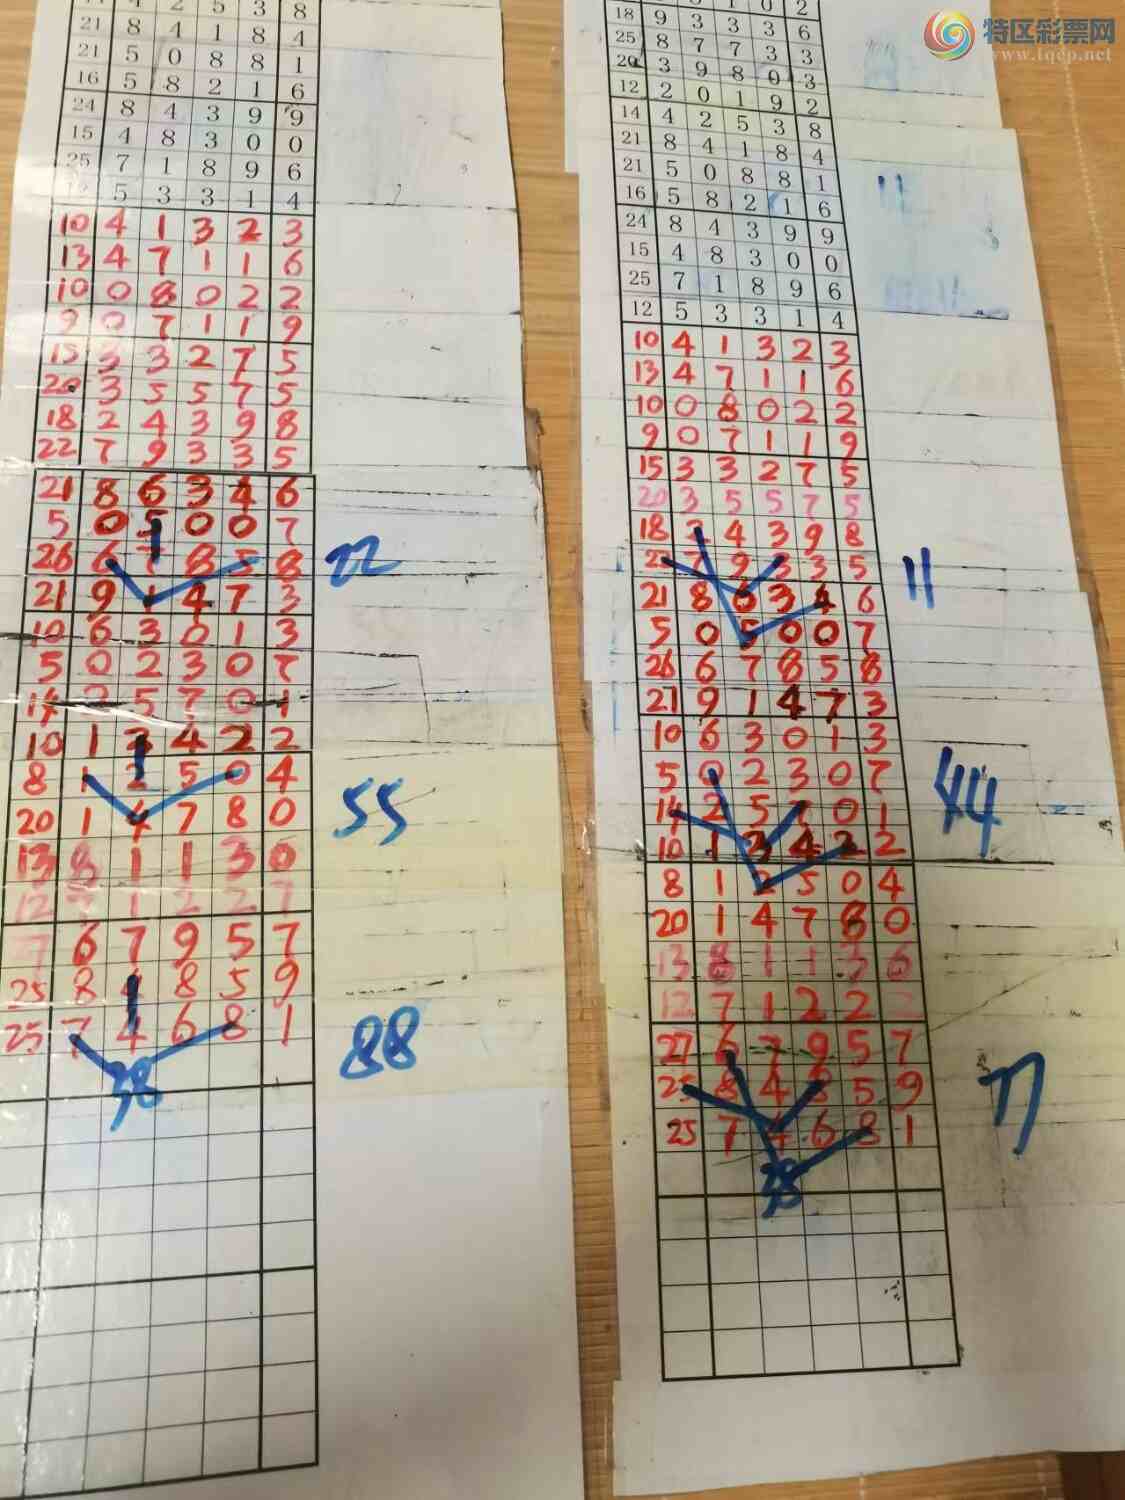 特区彩票网
www.tqcp.net
21 8 4 1 8 4
21 5 0 8 8 1
16 5 8 2 1 6
24 8 4 3 9 9
15 4 8 3 0 0
25 7 1 8 9 6
12 5 3 3 1 4
10 4 1 3 2 3
13 4 7 1 1 6
10 0 8 0 2 2
9 0 7 1 1 9
15 3 3 2 7 5
20 3 5 5 7 5
18 2 4 3 9 8
22 7 9 3 3 5
21 8 6 3 4 6
5 0 5 0 0 7
26 6 7 8 5 8
22
21 9 1 4 7 3
10 6 3 0 1 3
5 0 2 3 0 7
14 2 5 7 0 1
10 1 3 4 2 2
8 1 2 5 0 4
55
20 1 4 7 8 0
13 8 1 1 3 0
12 7 1 2 2 7
6 7 9 5 7
25 8 4 8 5 9
25 7 4 6 8 1
88
38
18 9 3 3 3 6
25 8 7 7 3 3
20 3 9 8 0 3
12 2 0 1 9 2
14 4 2 5 3 8
21 8 4 1 8 4
21 5 0 8 8 1
16 5 8 2 1 6
11
24 8 4 3 9 9
15 4 8 3 0 0
25 7 1 8 9 6
12 5 3 3 1 4
10 4 1 3 2 3
13 4 7 1 1 6
10 0 8 0 2 2
9 0 7 1 1 9
15 3 3 2 7 5
20 3 5 5 7 5
18 2 4 3 9 8
22 7 9 3 3 5
11
21 8 6 3 4 6
5 0 5 0 0 7
26 6 7 8 5 8
21 9 1 4 7 3
10 6 3 0 1 3
5 0 2 3 0 7
44
14 2 5 7 0 1
10 1 3 4 2 2
8 1 2 5 0 4
20 1 4 7 8 0
13 8 1 1 3 6
12 7 1 2 2
27 6 7 9 5 7
25 8 4 8 5 9
77
25 7 4 6 8 1
38